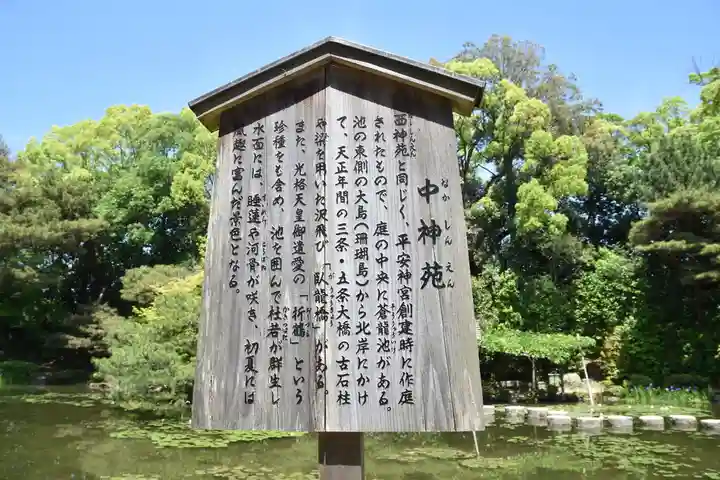 中神苑
なかしんえん
西神苑と同じく、平安神宮創建時に作庭
されたもので、庭の中央に蒼龍池がある。
池の東側の大島(珊瑚島)から北岸にかけ
て、天正年間の三条・五条大橋の古石柱
や梁を用いた沢飛び「臥龍橋」がある。
また、光格天皇御遺愛の「折鶴」という
珍種をも含め、池を囲んで杜若が群生し
水面には、睡蓮や河骨が咲き、初夏には
趣に富んだ景色となる。